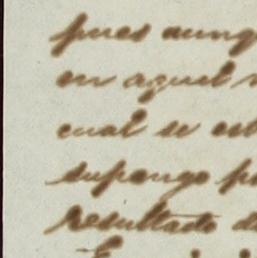 pues aunq
en aquel
cual se est
supongo p
resultado d